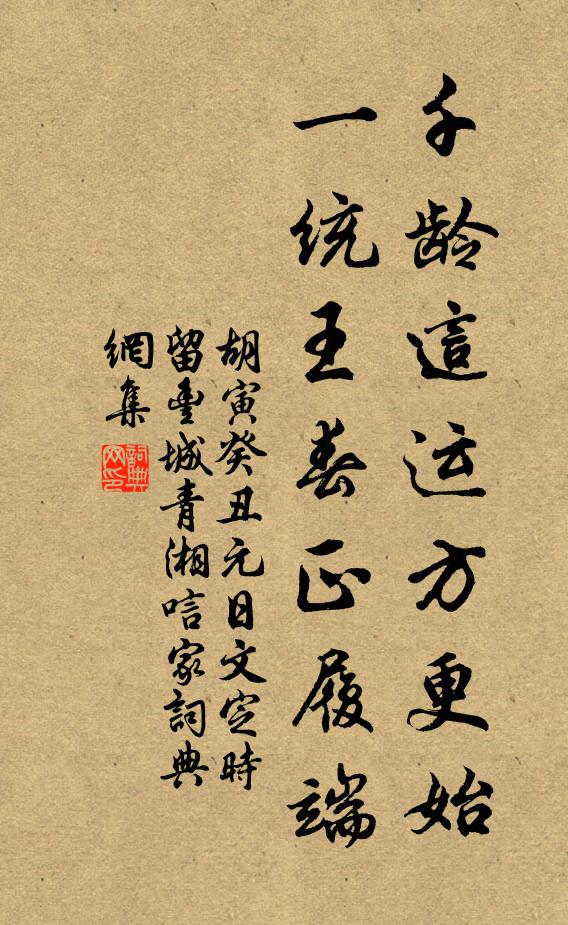 千龄這运方更始
一统王春正履端
胡寅癸丑元日文定時
留豐城青湘唁家詞典
網集
詞典网印